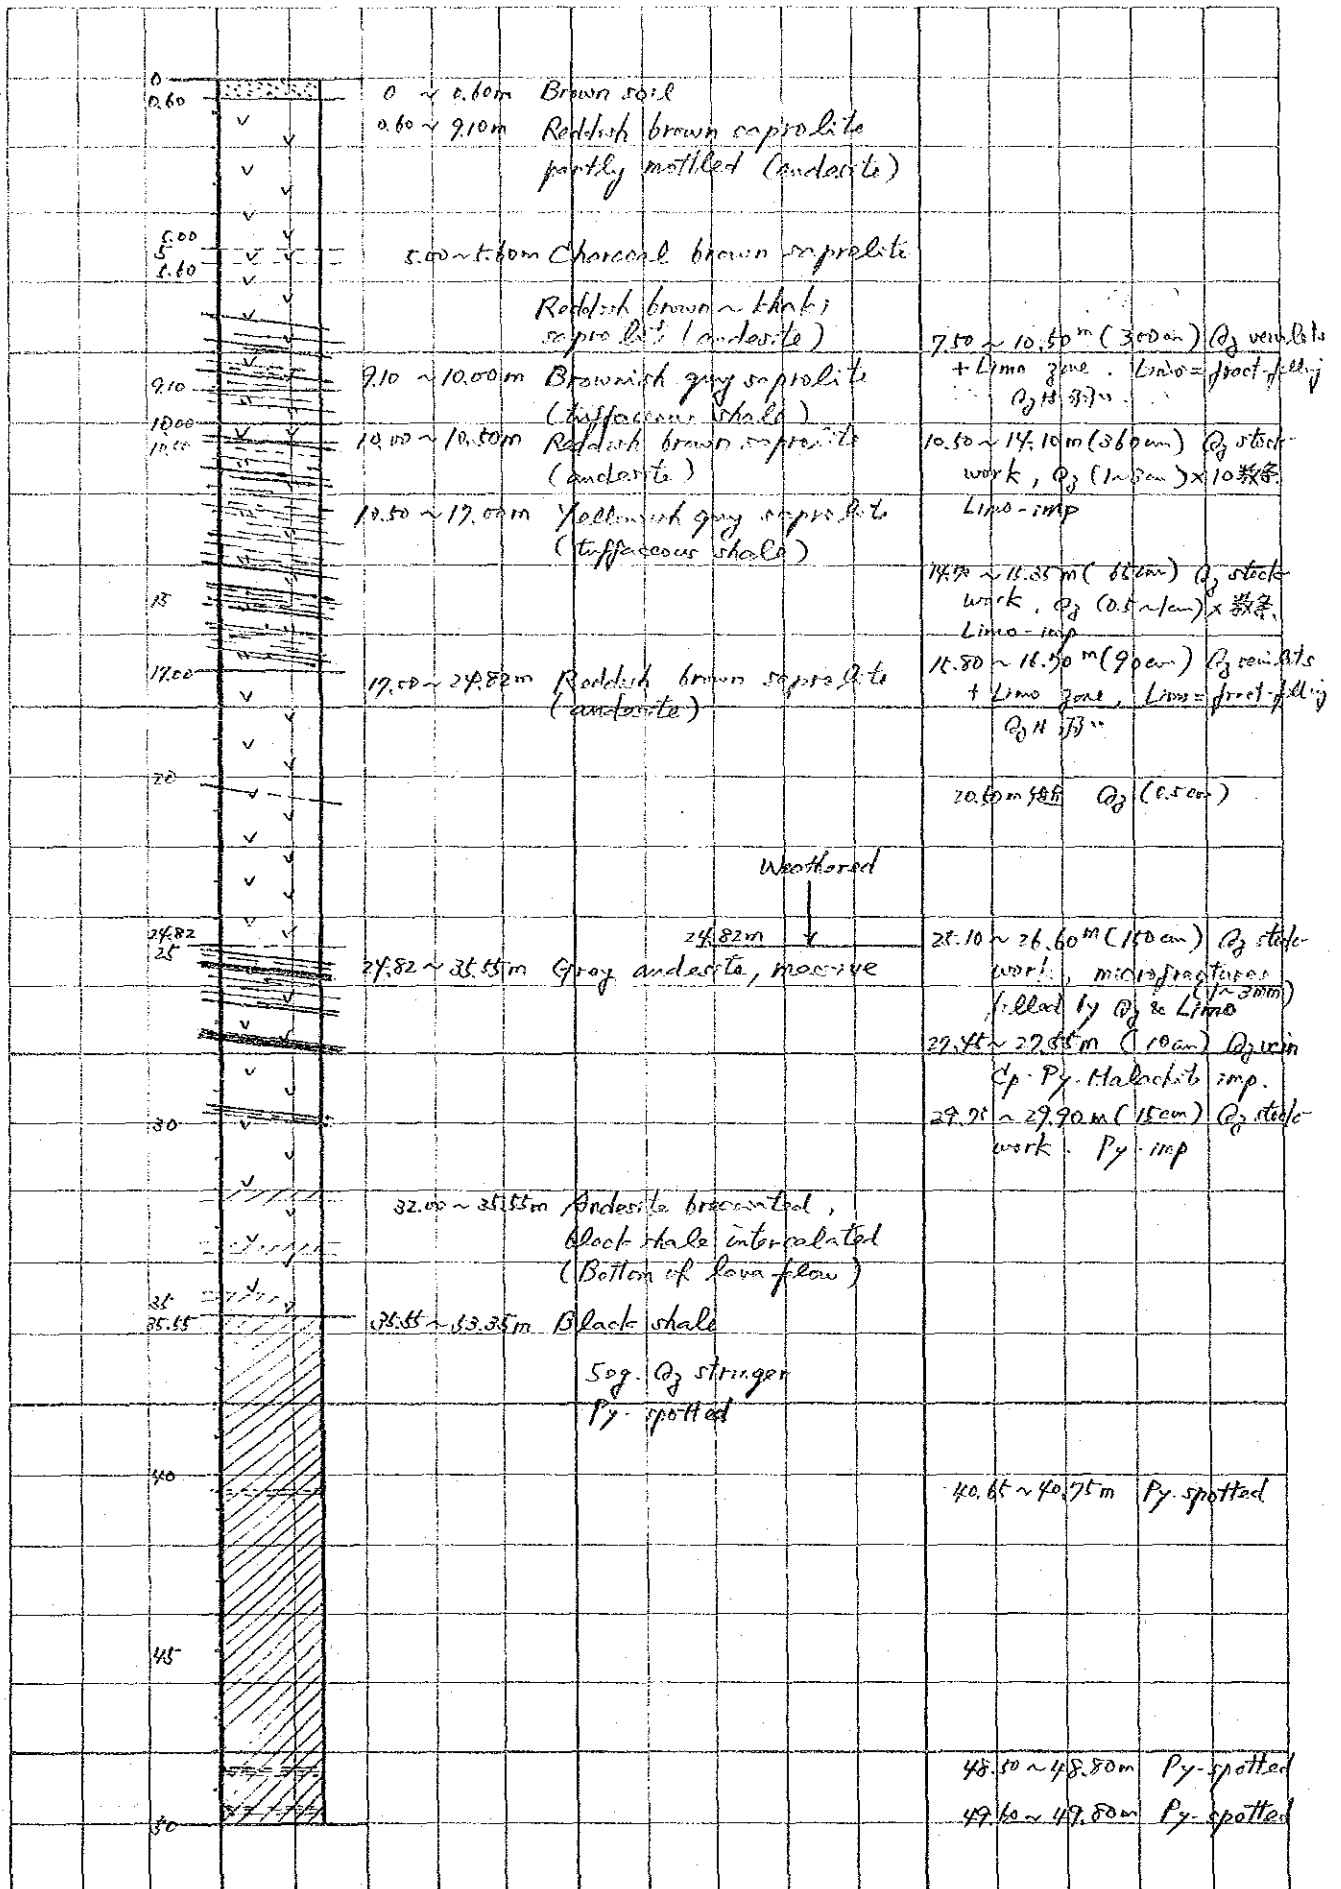 0
0.60
0 ~ 0.60m Brown soil
0.60 ~ 9.10m Reddish brown saprolite
partly mottled (andesite)
5.00
5
5.60
5.00~5.60m Charcoal brown saprolite
Reddish brown ~ khaki
saprolite (andesite)
9.10
9.10 ~ 10.00m Brownish gray saprolite
(tuffaceous shale)
10.00
10.50
10.00 ~ 10.50m Reddish brown saprolite
(andesite)
10.50 ~ 17.00m Yellowish gray saprolite
(tuffaceous shale)
15
17.00
17.00~24.82m Reddish brown saprolite
(andesite)
20
Weathered
24.82m
24.82
25
24.82 ~ 35.55m Gray andesite, massive
30
32.00 ~ 35.55m Andesite brecciated,
black shale intercalated
(Bottom of lava flow)
35
35.55
35.55 ~ 53.35m Black shale
Seg. Qz stringer
Py-spotted
40
45
50
7.50 ~ 10.50m (300cm) Qz veinlets
+ Limo zone. Limo = fract-filling
Qzは弱い.
10.50 ~ 14.10m (360cm) Qz stock-
work, Qz (1~3cm) × 10数条.
Limo-imp
14.70 ~ 15.35m (65cm) Qz stock-
work, Qz (0.5~1cm) × 数条.
Limo-imp
15.80 ~ 16.70m (90cm) Qz veinlets
+ Limo zone, Limo = fract-filling
Qzは弱い
20.60m Qz (0.5cm)
25.10 ~ 26.60m (150cm) Qz stock-
work, microfractures
(1~3mm)
filled by Qz & Limo
27.45 ~ 27.55m (10cm) Qz vein
Cp-Py-Malachite imp.
29.75 ~ 29.90m (15cm) Qz stock-
work. Py-imp
40.65 ~ 40.75m Py-spotted
48.50 ~ 48.80m Py-spotted
49.60 ~ 49.80m Py-spotted